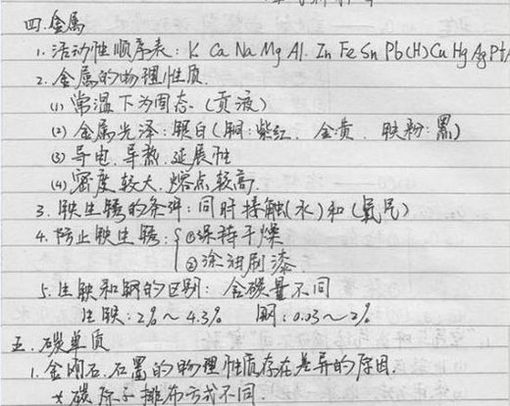 四.金属
1.活动性顺序表:K Ca Na Mg Al. Zn Fe Sn Pb(H)Cu Hg Ag Pt A
2.金属的物理性质.
(1)常温下为固态.(贡液)
(2)金属光泽:银白(铜:紫红. 金黄. 铁粉:黑)
(3)导电.导热.延展性
(4)密度较大.熔点较高.
3.铁生锈的条件:同时接触(水)和(氧气)
4.防止铁生锈:{①保持干燥
②涂油刷漆.
5.生铁和钢的区别:含碳量不同
生铁:2%~4.3% 钢:0.03~2%
五.碳单质
1.金刚石.石墨的物理性质存在差异的原因.
*碳原子排布方式不同.